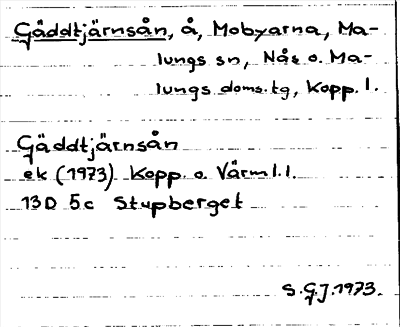 Gäddtjärnsån, å, Mobyarna, Ma-
lungs sn, Nås o. Ma-
lungs doms.tg, Kopp. l.
Gäddtjärnsån
ek (1973) Kopp. o. Värml. l.
13D 5c Stupberget
S.G.J. 1973.